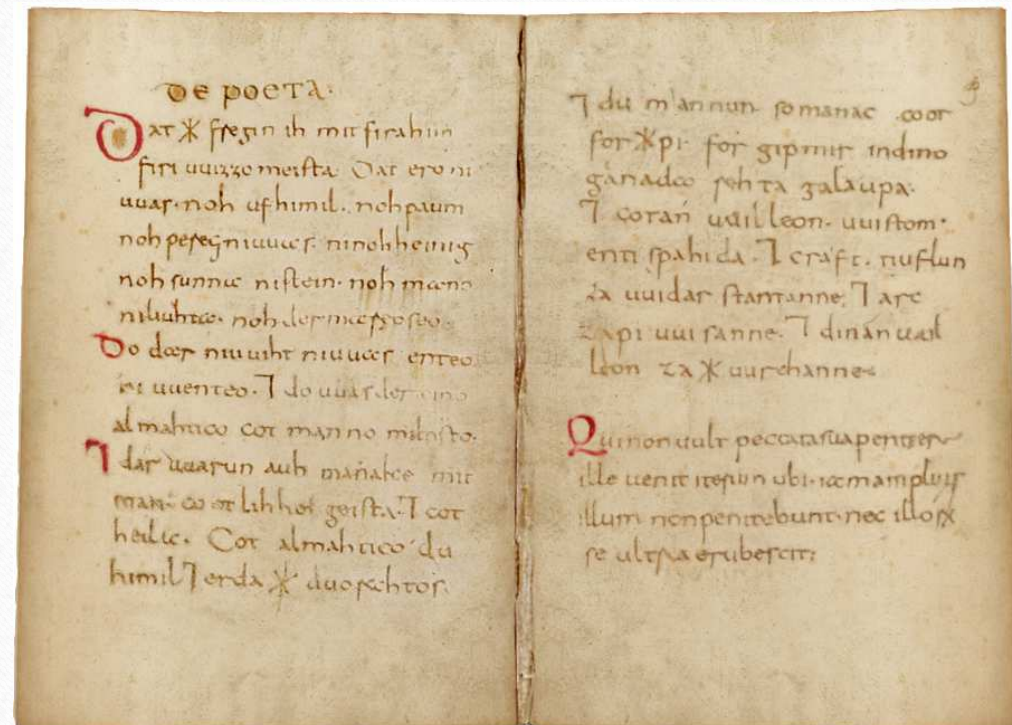 DE POETA.
Dat ᛡfregin ih mit firahim
firi uuizzo meista. Dat ero ni
uuas. noh ufhimil. noh paum
noh pereg ni uuas. ninohheinig
noh sunna nistein. noh mano
niliuhta. noh der mareo seo.
Do dar niuuiht niuuas enteo
ni uuenteo. ⁊ do uuas der eino
almahtico cot manno miltisto.
⁊ dar uuarun auh manake mit
man. cootlihhe geista. ⁊ cot
heilac. Cot almahtico du
himil ⁊ erda ᛡuuorahtos.
⁊ du mannun so manac coot
forᛡpi. for gipmir indino
ganada rehta galaupa.
⁊ cotan uuilleon. uuistom.
enti spahida. ⁊ craft. tiuflun
za uuidar stantanne. ⁊ arc
zapi uuisanne. ⁊ dinan uuil
leon za ᛡuurchanne.
Qui non uult peccata sua penitere
ille uenit iterum ubi. iam amplius
illum non penitebunt. nec illoꝝ
se ultra erubescit.